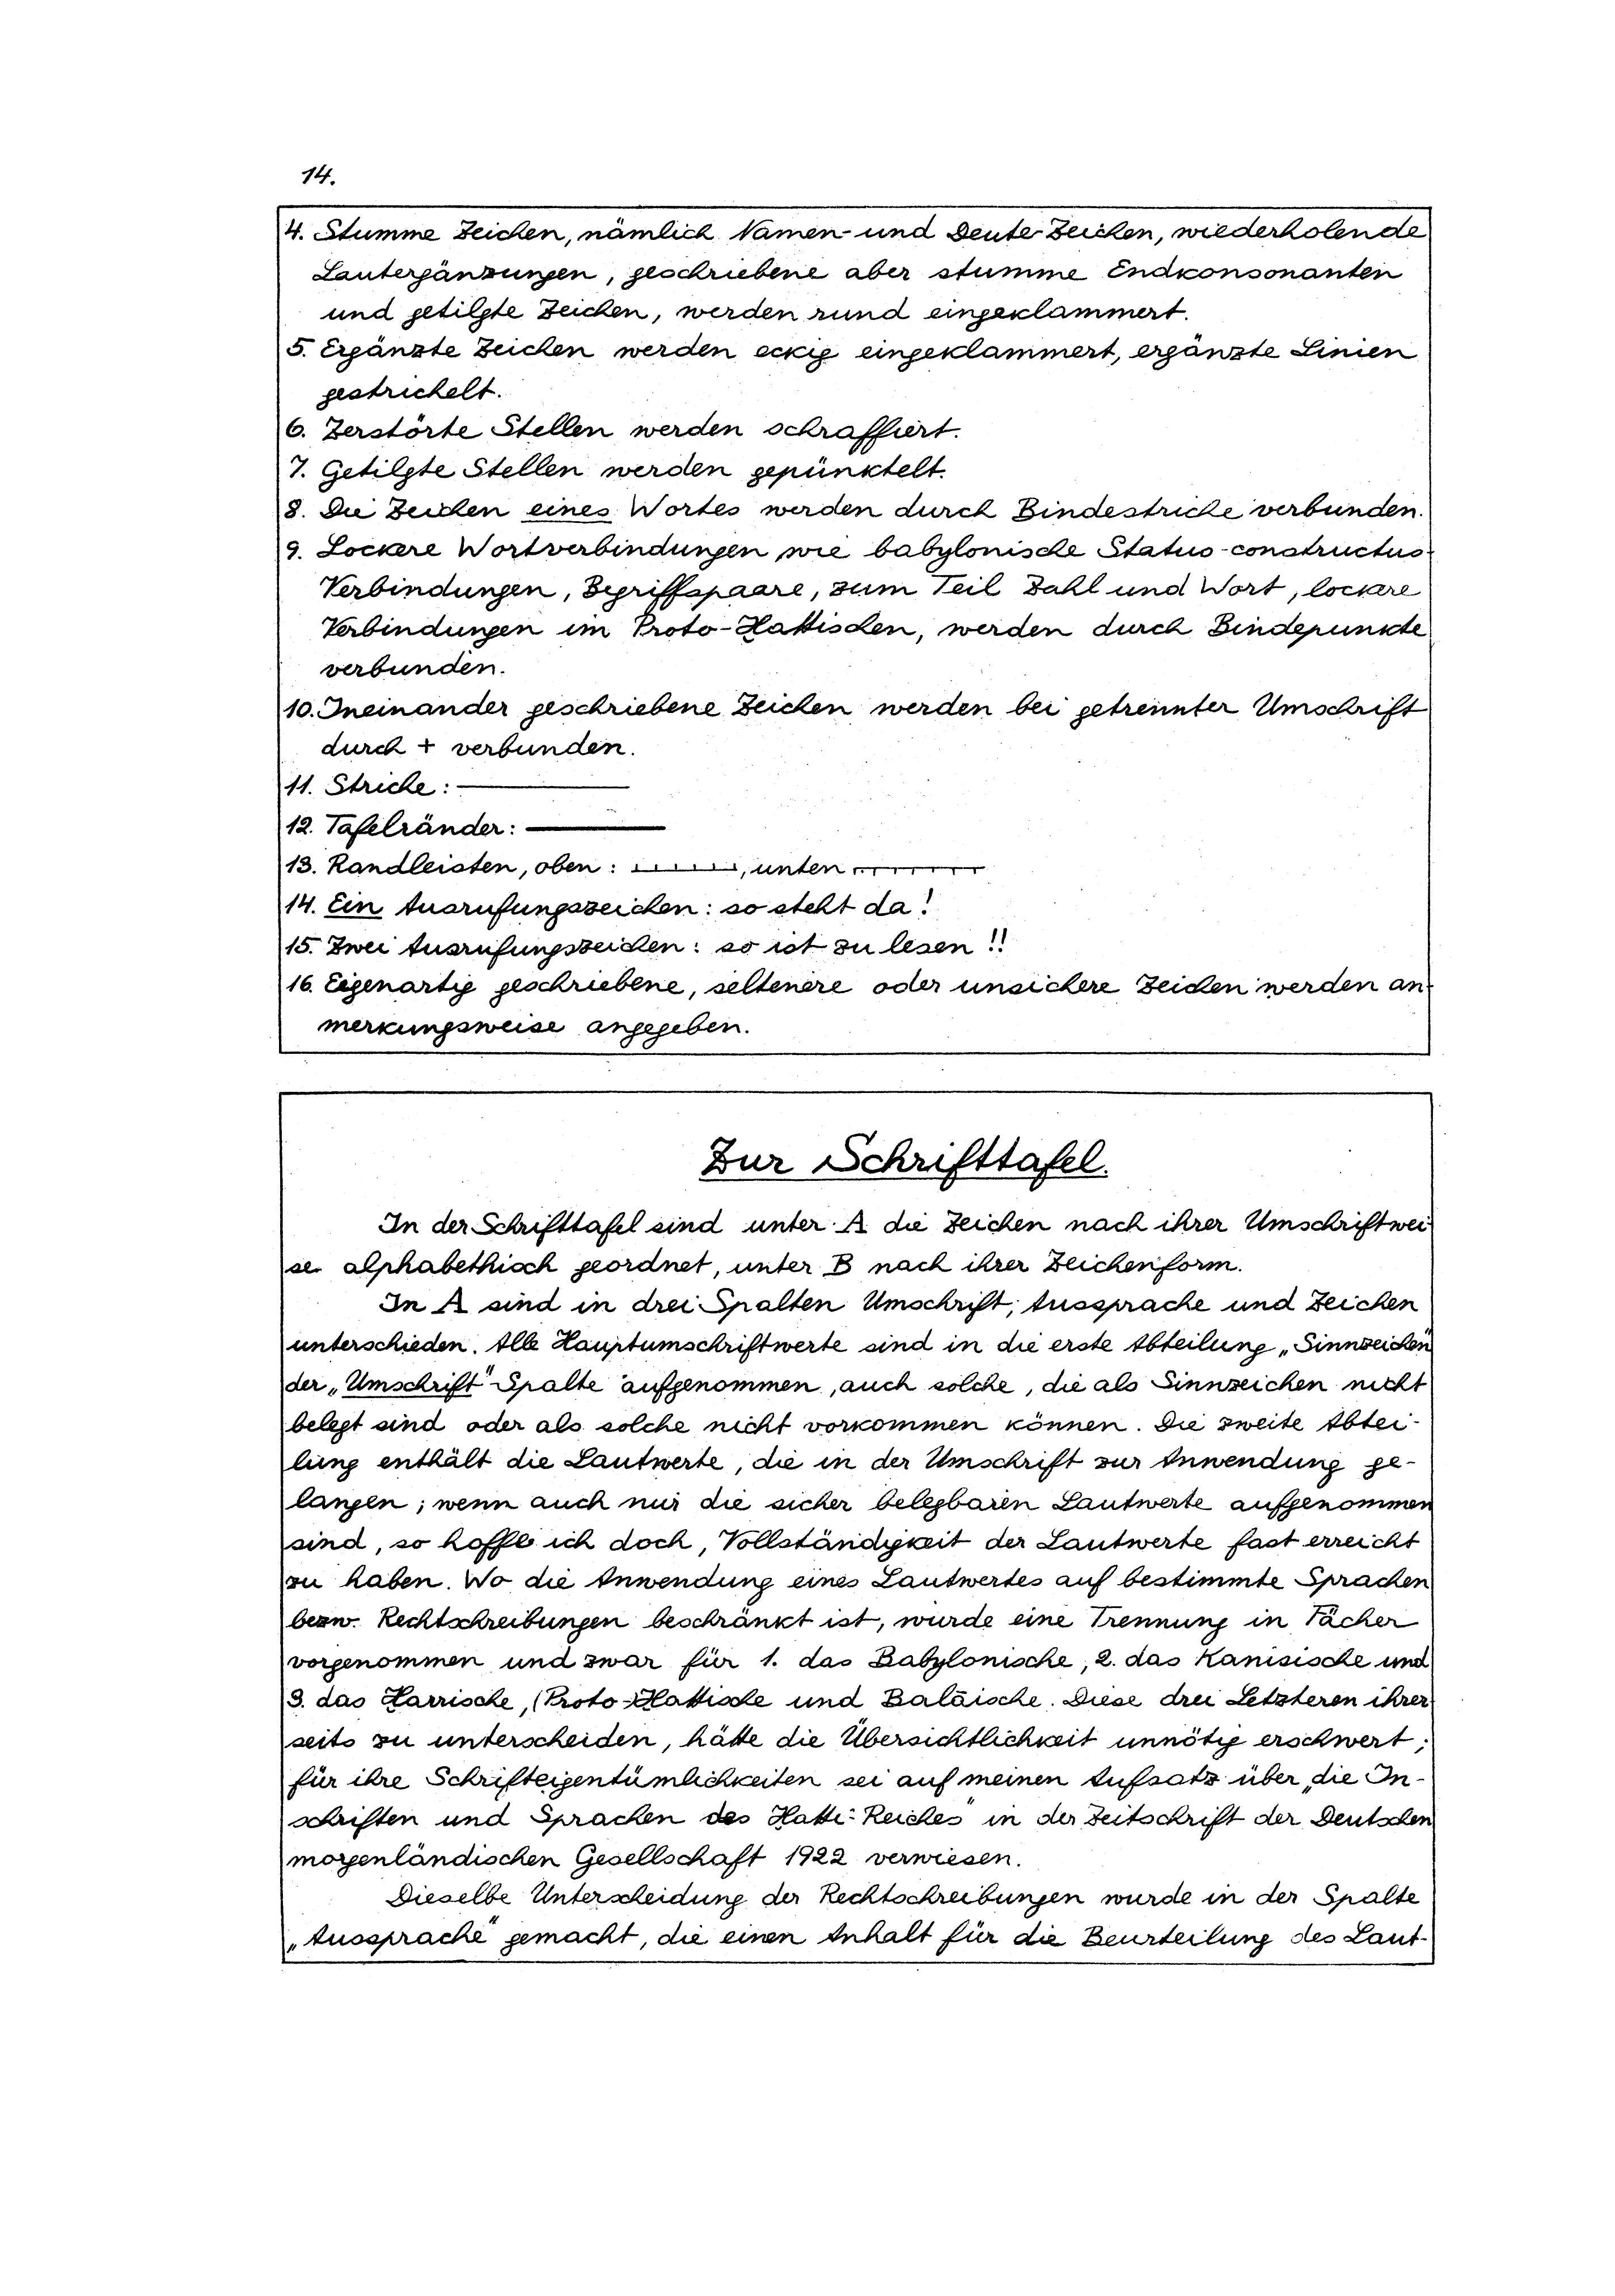 14.
4. Stumme Zeichen, nämlich Namen- und Deute-Zeichen, wiederholende
Lautergänzungen, geschriebene aber stumme Endkonsonanten
und getilgte Zeichen, werden rund eingeklammert.
5. Ergänzte Zeichen werden eckig eingeklammert, ergänzte Linien
gestrichelt.
6. Zerstörte Stellen werden schraffiert.
7. Getilgte Stellen werden gepünktelt.
8. Die Zeichen eines Wortes werden durch Bindestriche verbunden.
9. Lockere Wortverbindungen, wie babylonische Status-constructus-
Verbindungen, Begriffspaare, zum Teil Zahl und Wort, lockere
Verbindungen im Proto-Hattischen, werden durch Bindepunkte
verbunden.
10. Ineinander geschriebene Zeichen werden bei getrennter Umschrift
durch + verbunden.
11. Striche:
12. Tafelränder:
13. Randleisten, oben: , unten
14. Ein Ausrufungszeichen: so steht da!
15. Zwei Ausrufungszeichen: so ist zu lesen!!
16. Eigenartig geschriebene, seltenere oder unsichere Zeichen werden an-
merkungsweise angegeben.
Zur Schrifttafel.
In der Schrifttafel sind unter A die Zeichen nach ihrer Umschriftwei-
se alphabethisch geordnet, unter B nach ihrer Zeichenform.
In A sind in drei Spalten Umschrift, Aussprache und Zeichen
unterschieden. Alle Hauptumschriftwerte sind in die erste Abteilung „Sinnzeichen"
der „Umschrift"-Spalte aufgenommen, auch solche, die als Sinnzeichen nicht
belegt sind oder als solche nicht vorkommen können. Die zweite Abtei-
lung enthält die Lautwerte, die in der Umschrift zur Anwendung ge-
langen; wenn auch nur die sicher belegbaren Lautwerte aufgenommen
sind, so hoffe ich doch, Vollständigkeit der Lautwerte fast erreicht
zu haben. Wo die Anwendung eines Lautwertes auf bestimmte Sprachen
bezw. Rechtschreibungen beschränkt ist, wurde eine Trennung in Fächer
vorgenommen und zwar für 1. das Babylonische, 2. das Kanisische und
3. das Harrische, (Proto-)Hattische und Baläische. Diese drei Letzteren ihrer-
seits zu unterscheiden, hätte die Übersichtlichkeit unnötig erschwert;
für ihre Schrifteigentümlichkeiten sei auf meinen Aufsatz über „die In-
schriften und Sprachen des Hatti-Reiches" in der Zeitschrift der Deutschen
morgenländischen Gesellschaft 1922 verwiesen.
Dieselbe Unterscheidung der Rechtschreibungen wurde in der Spalte
„Aussprache" gemacht, die einen Anhalt für die Beurteilung des Laut-